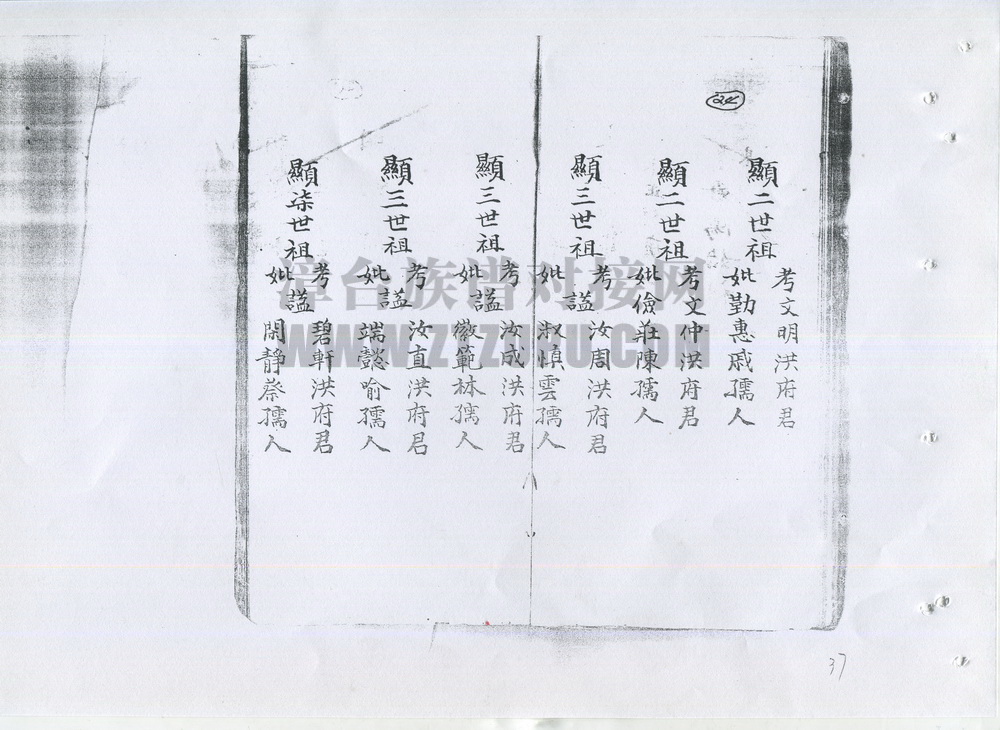 24
顯二世祖
考文明洪府君
妣勤惠戚孺人
顯二世祖
考文仲洪府君
妣儉莊陳孺人
顯三世祖
考謚汝周洪府君
妣淑慎雲孺人
顯三世祖
考謚汝成洪府君
妣徽範林孺人
顯三世祖
考謚汝直洪府君
妣端懿喻孺人
顯柒世祖
考謚碧軒洪府君
妣閑靜蔡孺人
漳台族谱对接网
WWW.ZTZUPU.COM
37